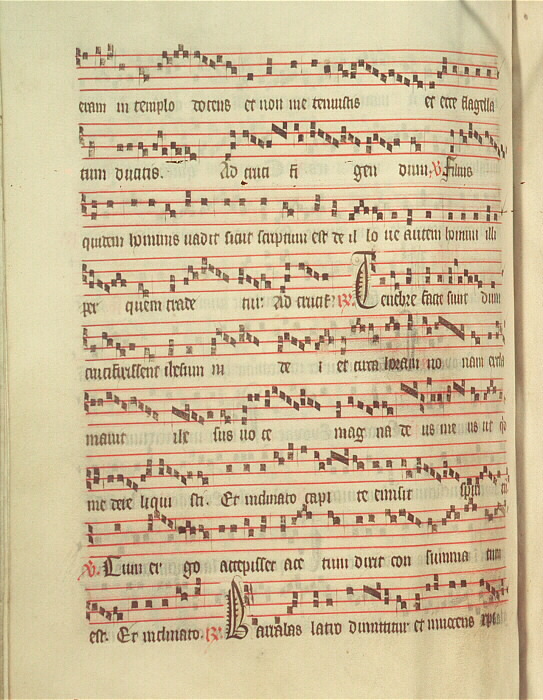 eram in templo docens et non me tenuistis et ecce flagella
tum ducitis. Ad cruci fi gen dum. V. Filius
quidem hominis vadit sicut scriptum est de il lo ve autem homini illi
per quem trade tur Ad crucif. R. Tenebre facte sunt dum
crucifixissent ihesum iu de i et circa horam no nam excla
mavit ihe sus vo ce mag na de us me us ut q
me dere liqui sti. Et inclinato capi te emisit spiri
V. Cum er go accepisset ace tum dixit con summa tum
est. Et inclinato. R. Barrabas latro dimittitur et innocens xps